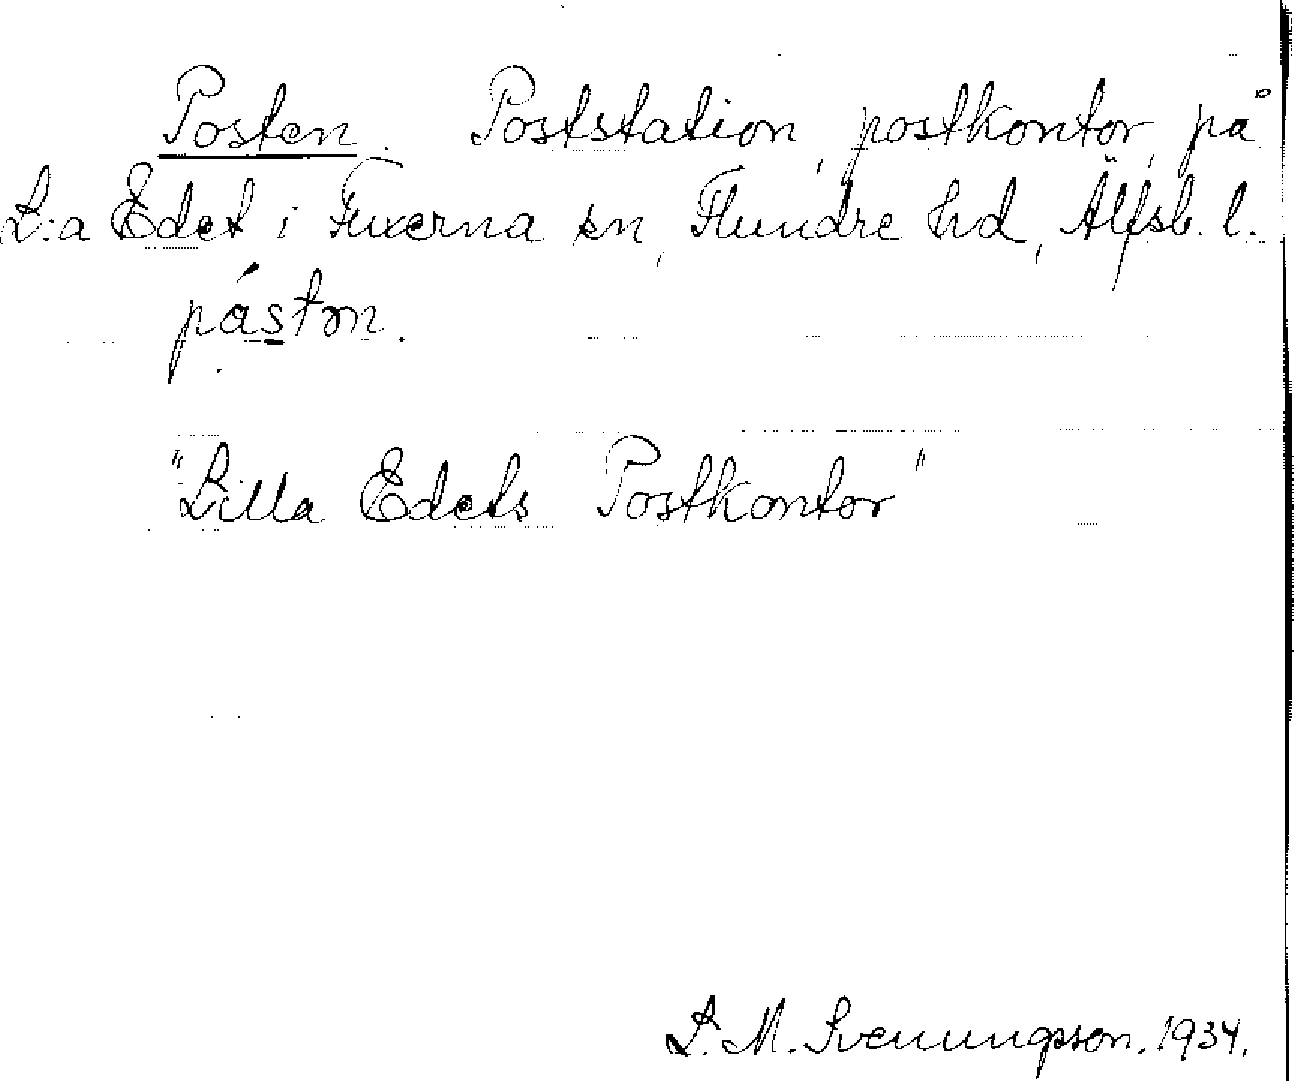 Posten. Poststation, postkontor, på
L:a Edet i Fuxerna sn, Flundre hd, Älfsb. l.
påstɷn.
"Lilla Edets Postkontor"
S. M. Svenungsson. 1934.